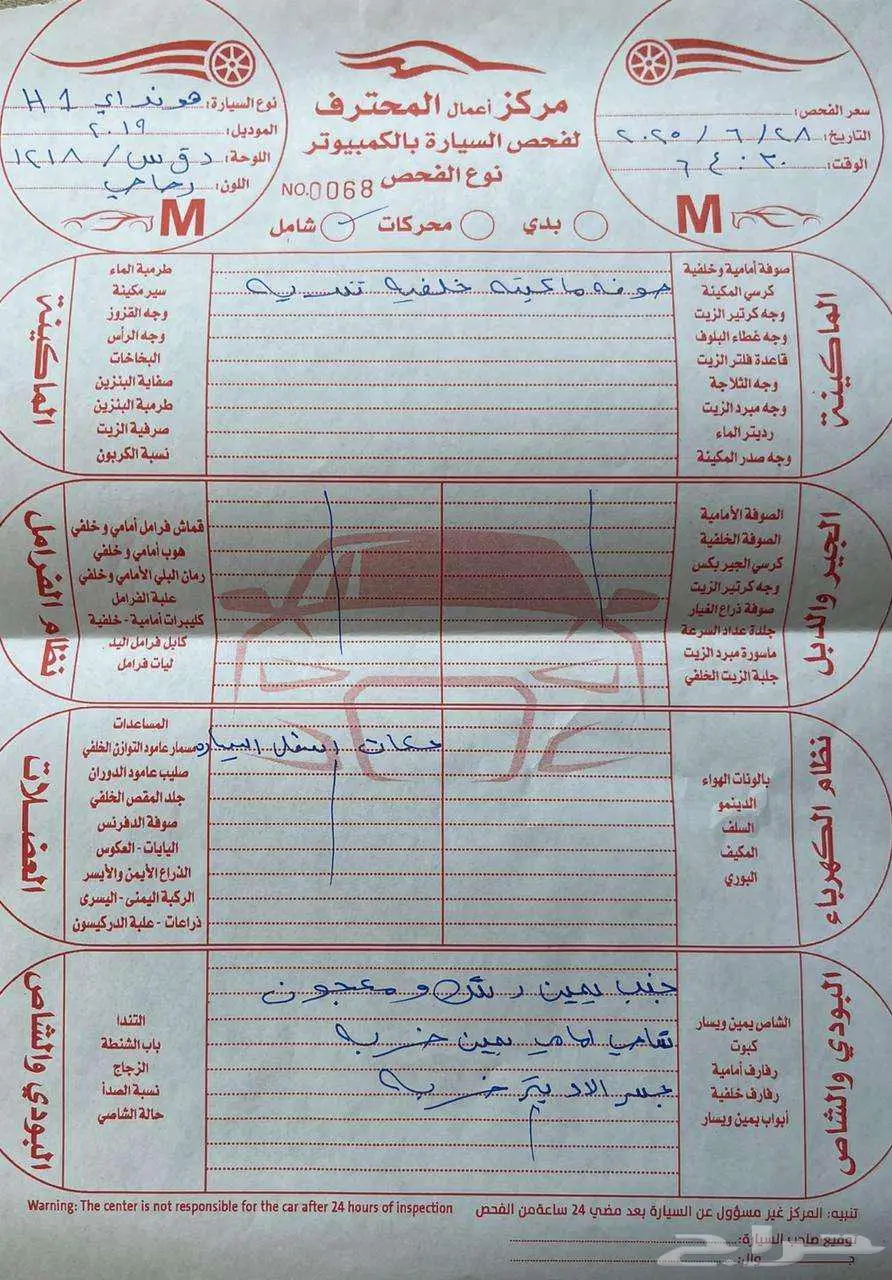 مركز أعمال المحترف
لفحص السيارة بالكمبيوتر
نوع الفحص
NO.0068
بدي
محركات
شامل
سعر الفحص:
التاريخ: ٢٠٢٥/٦/٢٨
الوقت: ٦٤:٣٠
M
نوع السيارة: هونداي H1
الموديل: ٢٠١٩
اللوحة: د ق س / ١٢١٨
اللون: رصاصي
M
الماكينة
صوفة أمامية وخلفية
كرسي المكينة
وجه كرتير الزيت
وجه غطاء البلوف
قاعدة فلتر الزيت
وجه الثلاجة
وجه مبرد الزيت
رديتر الماء
وجه صدر المكينة
صوفه ماكينه خلفيه تنديه
طرمبة الماء
سير مكينة
وجه القزوز
وجه الرأس
البخاخات
صفاية البنزين
طرمبة البنزين
صرفية الزيت
نسبة الكربون
الماكينة
الجير والدبل
الصوفة الأمامية
الصوفة الخلفية
كرسي الجير بكس
وجه كرتير الزيت
صوفة ذراع الغيار
جلدة عداد السرعة
ماسورة مبرد الزيت
جلبة الزيت الخلفي
قماش فرامل أمامي وخلفي
هوب أمامي وخلفي
رمان البلي الأمامي وخلفي
علبة الفرامل
كليبرات أمامية - خلفية
كابل فرامل اليد
ليات فرامل
نظام الفرامل
نظام الكهرباء
بالونات الهواء
الدينمو
السلف
المكيف
البوري
حكات اسفل السياره
المساعدات
مسمار عامود التوازن الخلفي
صليب عامود الدوران
جلد المقص الخلفي
صوفة الدفرنس
اليايات - العكوس
الذراع الأيمن والأيسر
الركبة اليمنى - اليسرى
ذراعات - علبة الدركيسون
العضلات
البودي والشاص
الشاص يمين ويسار
كبوت
رفارف أمامية
رفارف خلفية
أبواب يمين ويسار
جنب يمين رش و معجون
شاصي امامي يمين ضربه
جسر الاديتر ضربه
التندا
باب الشنطة
الزجاج
نسبة الصدأ
حالة الشاصي
البودي والشاص
تنبيه: المركز غير مسؤول عن السيارة بعد مضي 24 ساعة من الفحص
Warning: The center is not responsible for the car after 24 hours of inspection
توقيع صاحب السيارة:
حراج